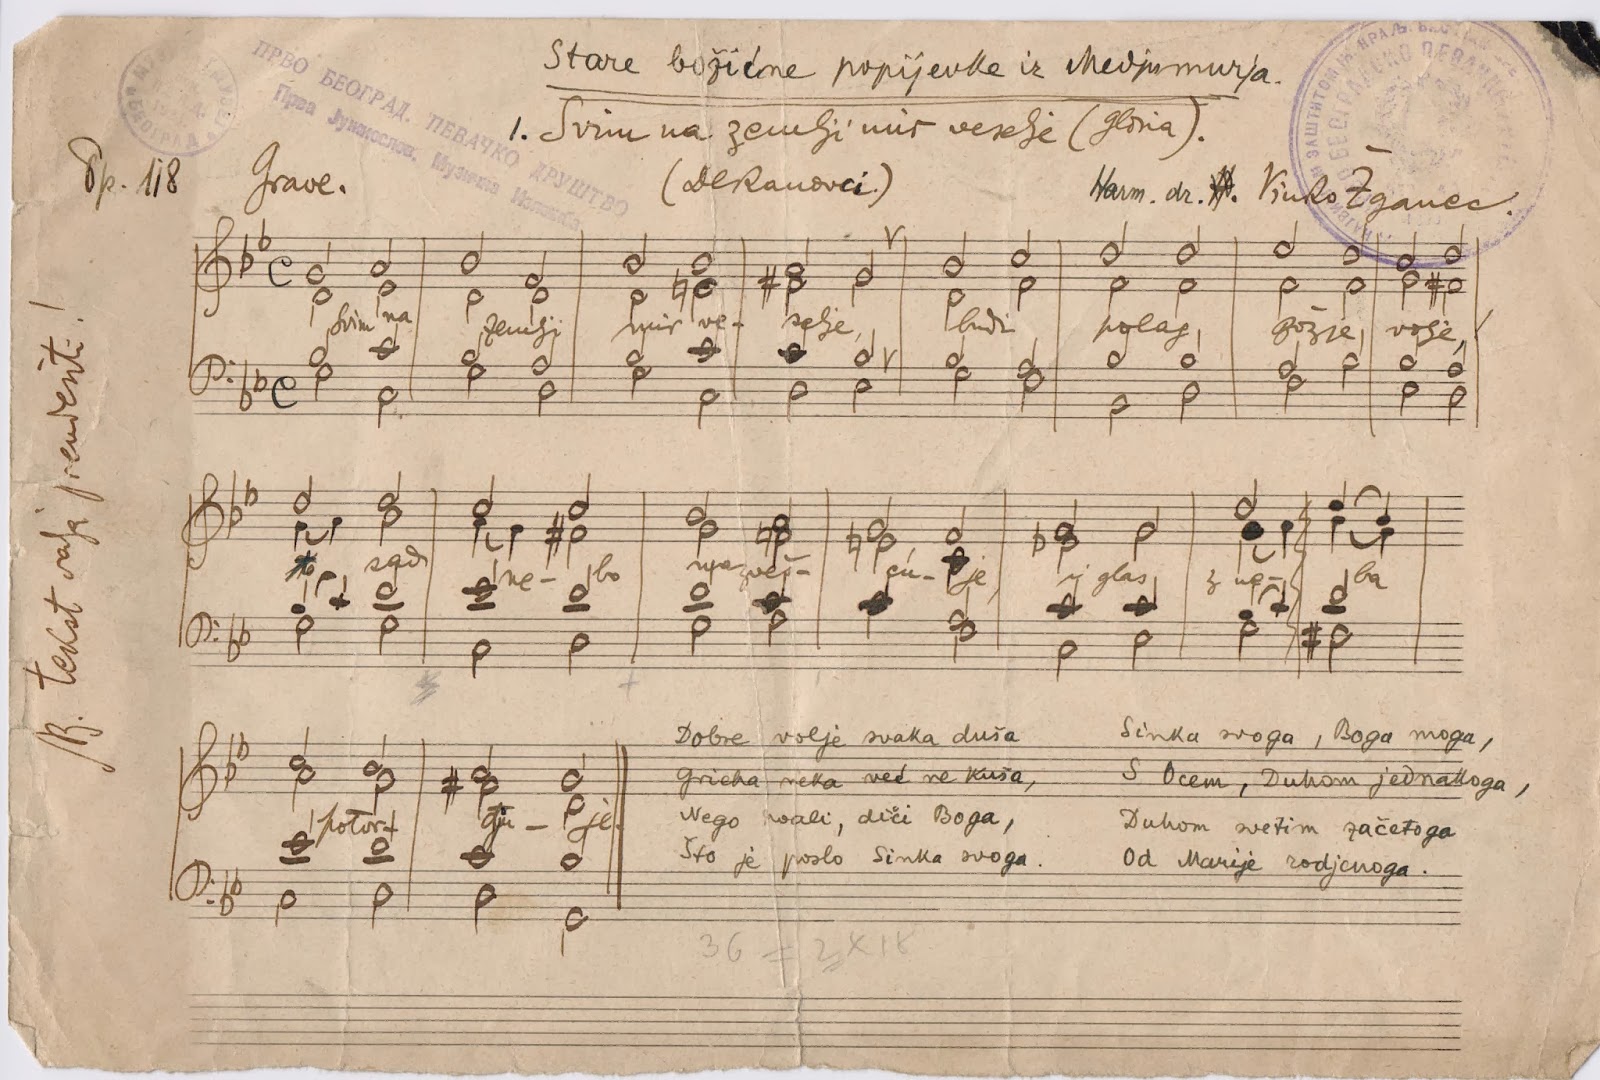 Stare božićne popijevke iz Medjumurja.
1. Svim na zemlji mir veselje (gloria).
ПРВО БЕОГРАД. ПЕВАЧКО ДРУШТВО
Прва Југослов. Музичка
Op. 118
Grave.
(Dekanovci.)
Harm. dr. Vinko Žganec.
Svim na zemlji mir ve- selje, budi polag božje volje,
sad ne- bo
ću- je, i glas z ne- ba
potvr- dju- je.
NB. tekst valja
Dobre volje svaka duša
Grieha neka već ne kuša,
Nego hvali, diči Boga,
Što je poslo Sinka svoga.
Sinka svoga, Boga moga,
S Ocem, Duhom jednakoga,
Duhom svetim začetoga
Od Marije rodjenoga.
36 = 2 x 18